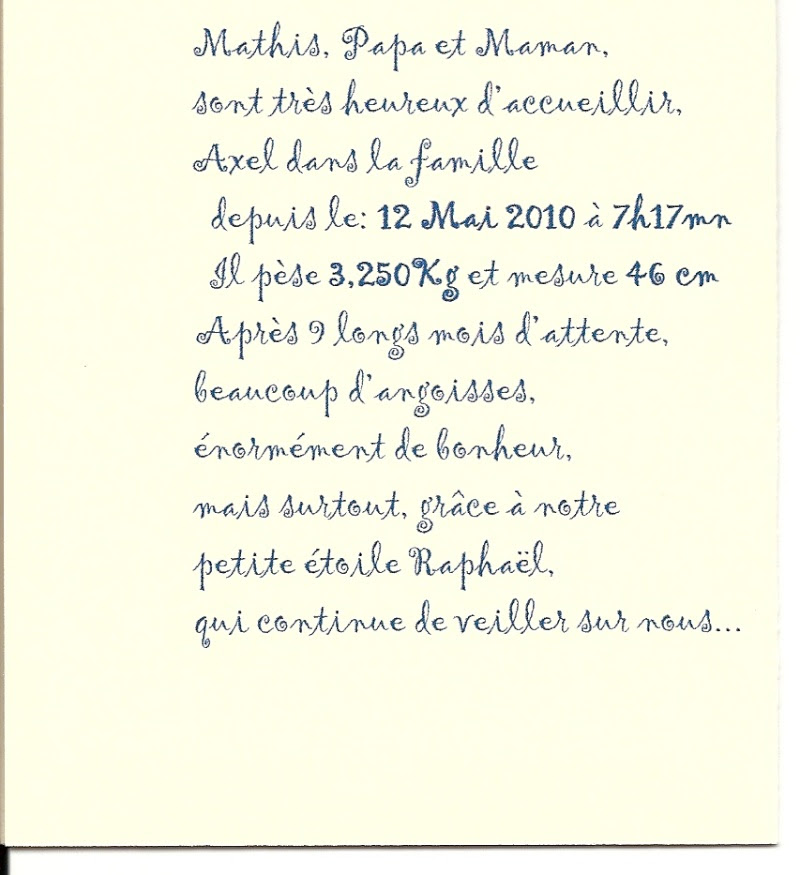 Mathis, Papa et Maman,
sont très heureux d'accueillir,
Axel dans la famille
depuis le: 12 Mai 2010 à 7h17mn
Il pèse 3,250Kg et mesure 46 cm
Après 9 longs mois d'attente,
beaucoup d'angoisses,
énormément de bonheur,
mais surtout, grâce à notre
petite étoile Raphaël,
qui continue de veiller sur nous...